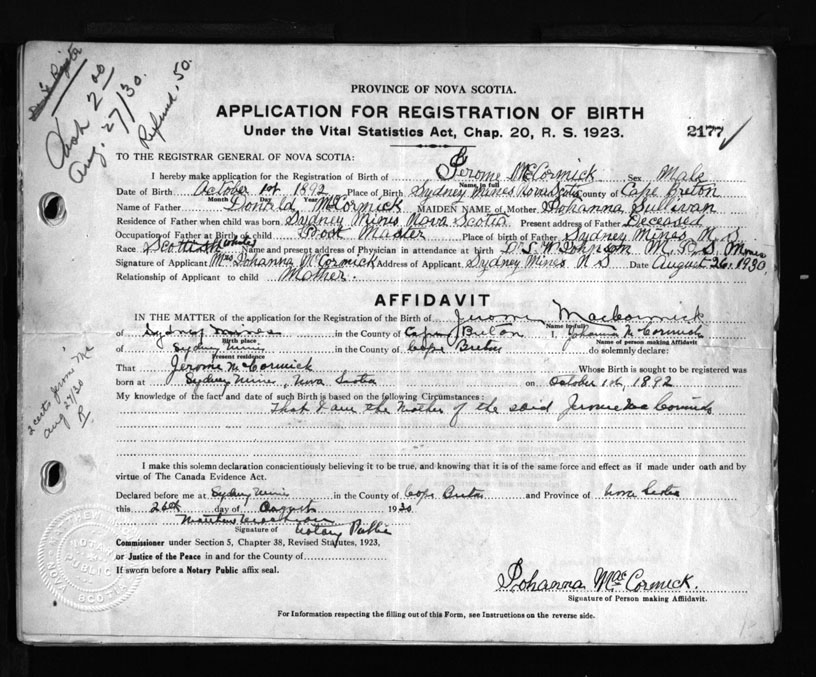 Cash 2.00
Aug. 27/30.
Refund .50.
PROVINCE OF NOVA SCOTIA.
APPLICATION FOR REGISTRATION OF BIRTH
Under the Vital Statistics Act, Chap. 20, R. S. 1923.
2177
TO THE REGISTRAR GENERAL OF NOVA SCOTIA:
I hereby make application for the Registration of Birth of Jerome McCormick Sex Male
Name in full
Date of Birth October 1st 1892 Place of Birth Sydney Mines Nova Scotia County of Cape Breton
Month Day Year
Name of Father Donald McCormick MAIDEN NAME of Mother Johanna Sullivan
Residence of Father when child was born Sydney Mines Nova Scotia Present address of Father Deceased
Occupation of Father at Birth of child Master Place of birth of Father Sydney Mines N. S
Race Scottish Name and present address of Physician in attendance at birth Mines
Signature of Applicant Johanna McCormick Address of Applicant Sydney Mines N S Date August 26, 1930.
Relationship of Applicant to child Mother.
AFFIDAVIT
IN THE MATTER of the application for the Registration of the Birth of Jerome MacCormick
Name in full
of Sydney Mines in the County of Cape Breton I, Johanna McCormick
Birth place Name of person making Affidavit
of Sydney Mines in the County of Cape Breton do solemnly declare:
Present residence
That Jerome McCormick Whose Birth is sought to be registered was
born at Sydney Mines, Nova Scotia on October 1st, 1892
My knowledge of the fact and date of such Birth is based on the following Circumstances:
That I am the Mother of the said Jerome MacCormick
2 certs Jerome Mc
aug 27/30
R
I make this solemn declaration conscientiously believing it to be true, and knowing that it is of the same force and effect as if made under oath and by
virtue of The Canada Evidence Act.
Declared before me at Sydney Mines in the County of Cape Breton and Province of Nova Scotia
this 26th day of August 1930
Signature of Notary Public
Commissioner under Section 5, Chapter 38, Revised Statutes, 1923,
or Justice of the Peace in and for the County of
If sworn before a Notary Public affix seal.
NOTARY PUBLIC
NOVA SCOTIA
Johanna MacCormick.
Signature of Person making Affidavit.
For Information respecting the filling out of this Form, see Instructions on the reverse side.